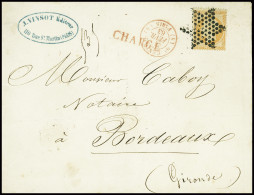 J. VINSOT Editeur
CHARGÉ
Monsieur Caboy
Notaire
à
Bordeaux
(Gironde)